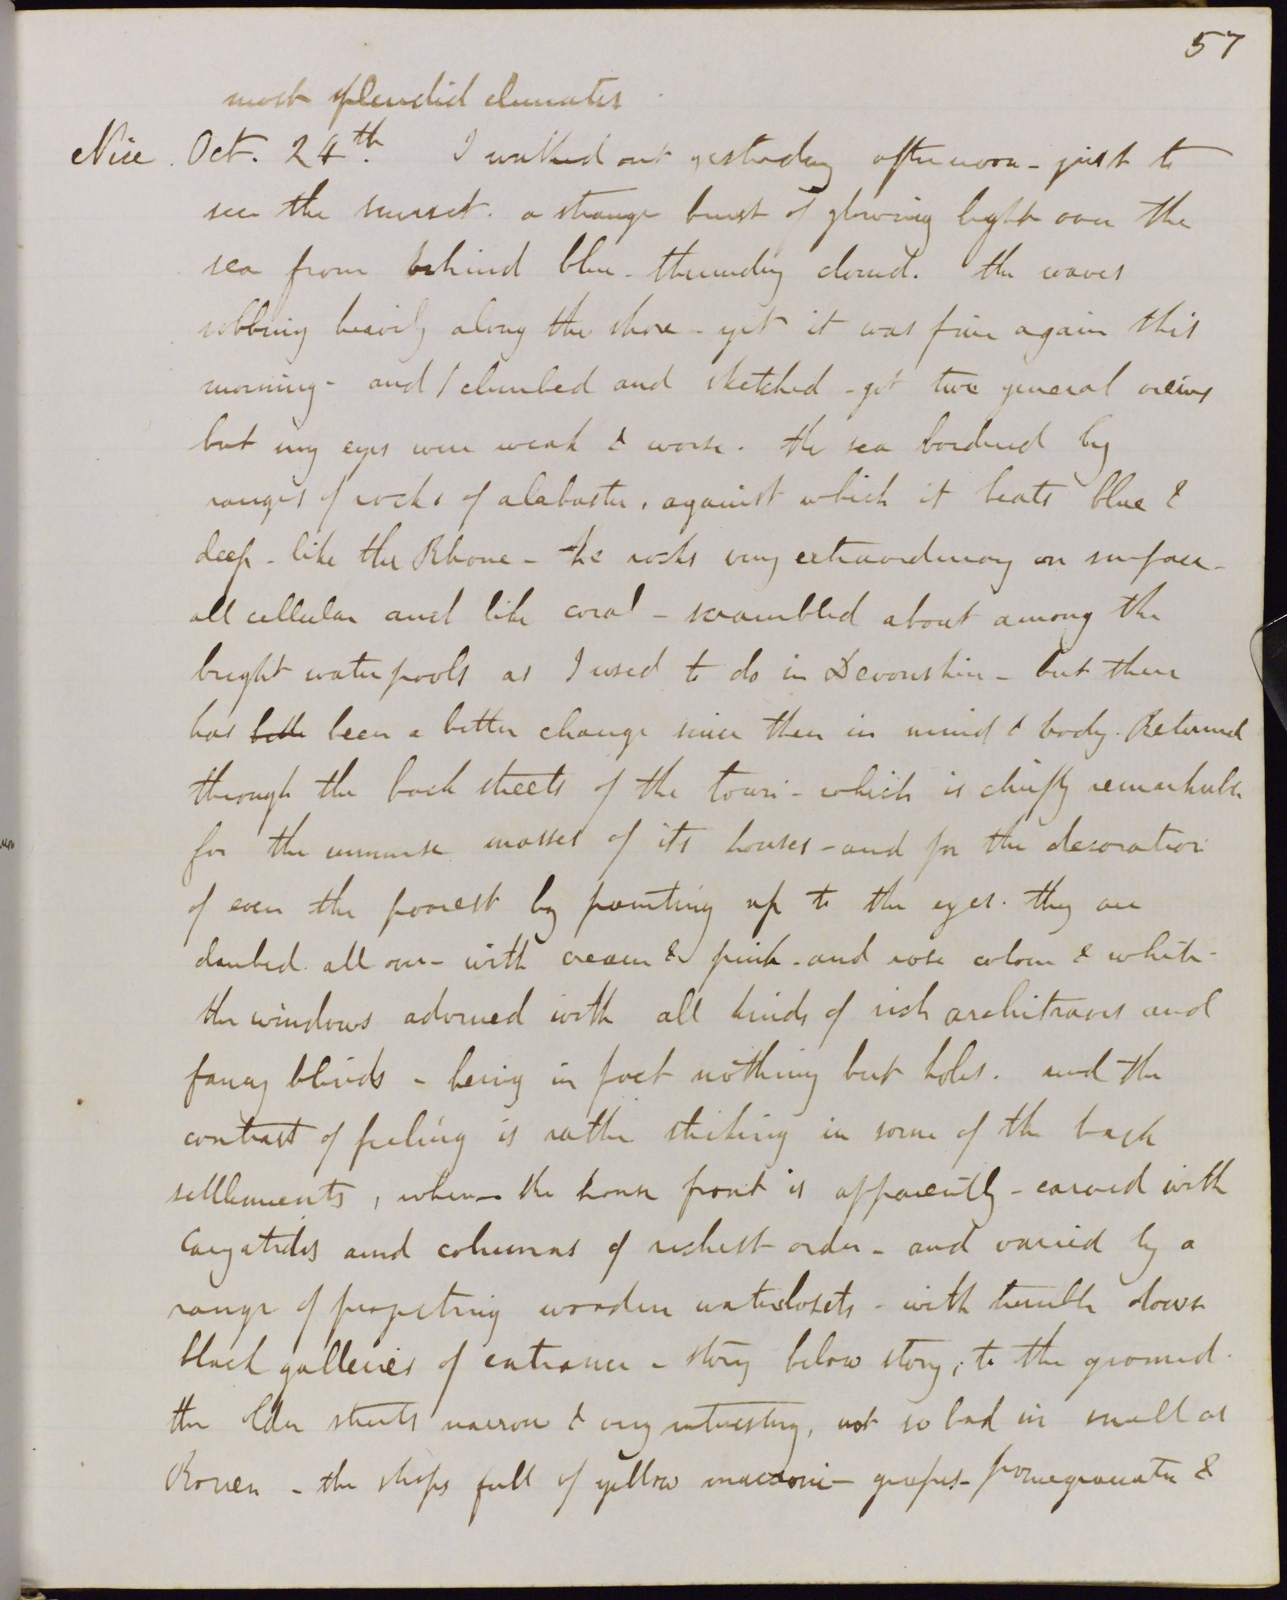 57
most splendid climates
Nice. Oct. 24th. I walked out yesterday afternoon - just to
see the sunset. a strange burst of glowing light over the
sea from behind blue - thundery cloud. the waves
sobbing heavily along the shore - yet it was fine again this
morning - and I climbed and sketched - got two general views
but my eyes were weak & worse. the sea bordered by
ranges of rocks of alabaster, against which it beats blue &
deep - like the Rhone - the rocks very extraordinary on surface -
all cellular and like coral - scrambled about among the
bright water pools as I used to do in Devonshire - but there
has been a better change since then in mind & body. Returned
through the back streets of the town - which is chiefly remarkable
for the immense masses of its houses - and for the decoration
of even the poorest by painting up to the eyes. they are
daubed all over - with cream & pink - and rose colour & white -
the windows adorned with all kinds of rich architraves and
fancy blinds - being in fact nothing but holes. and the
contrast of feeling is rather striking in some of the back
settlements, where the house front is apparently - carved with
Caryatides and columns of richest order - and varied by a
range of projecting wooden waterclosets - with tumble down
black galleries of entrance - story below story, to the ground.
the older streets narrow & very interesting, not so bad in smell as
Rouen - the shops full of yellow macaroni - grapes - pomegranates &